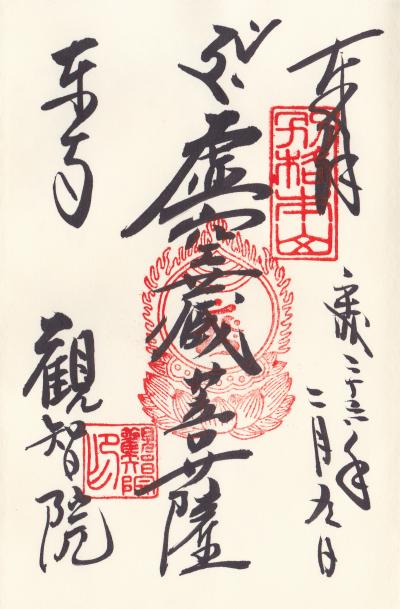 奉拝
別格本山
平成二十六年
二月九日
虚空蔵菩薩
東寺
観智院